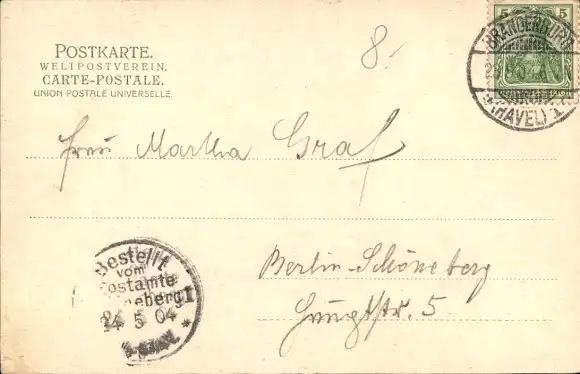 POSTKARTE.
WELTPOSTVEREIN.
CARTE-POSTALE.
UNION POSTALE UNIVERSELLE.
8.-
5 5
BRANDENBURG
(HAVEL) 1
Frau Martha Graf
Berlin-Schöneberg
Hauptstr. 5
Bestellt
vom
Postamte
Schöneberg 1
24 5 04